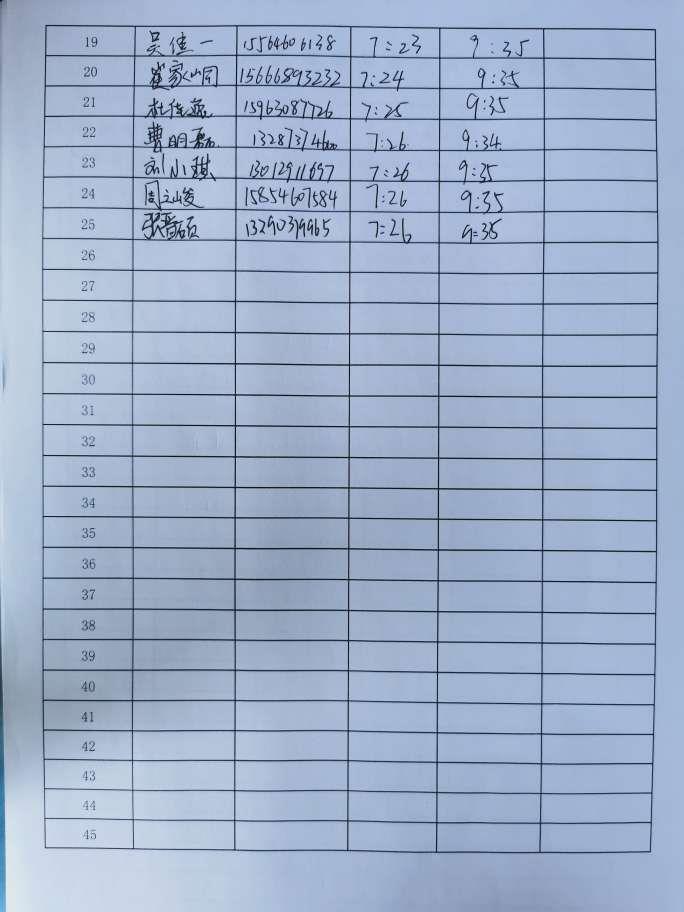 19 吴佳一 15564606138 7:23 9:35
20 崔家峒 15666893232 7:24 9:35
21 杜佳 15963087726 7:25 9:35
22 曹明磊 7:26 9:34
23 刘小琪 13012911697 7:26 9:35
24 周立峻 15854607584 7:26 9:35
25 张晋硕 7:26 9:35
26
27
28
29
30
31
32
33
34
35
36
37
38
39
40
41
42
43
44
45